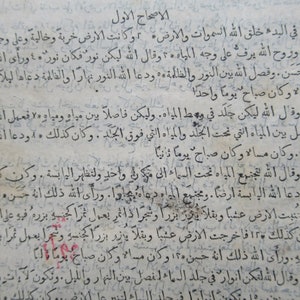 الاصحاح الاول
في البدء خلق الله السموات والارض ٢ وكانت الارض خربة وخالية وعلى وجه
وروح الله يرف على وجه المياه ٣ وقال الله ليكن نور فكان نور ٤ ورأى
حسن. وفصل الله بين النور والظلمة ٥ ودعا الله النور نهارا والظلمة دعاها ليلا
وكان مساء وكان صباح يوما واحدا
وقال الله ليكن جلد في وسط المياه. وليكن فاصلا بين مياه ومياه ٧ فعمل
بين المياه التي تحت الجلد والمياه التي فوق الجلد. وكان كذلك ٨ ودعا
وكان مساء وكان صباح يوما ثانيا
وقال الله لتجتمع المياه تحت السماء الى مكان واحد ولتظهر اليابسة. وكان
الله اليابسة ارضا. ومجتمع المياه دعاه بحورا. ورأى الله ذلك انه حسن
لتنبت الارض عشبا وبقلا يبزر بزرا وشجرا ذا ثمر يعمل ثمرا كجنسه بزره فيه على
كذلك ١٢ فاخرجت الارض عشبا وبقلا يبزر بزرا كجنسه
ذلك انه حسن ١٣ وكان مساء وكان صباح يوما
وقال الله لتكن انوار في جلد السماء لتفصل بين النهار والليل. وتكون